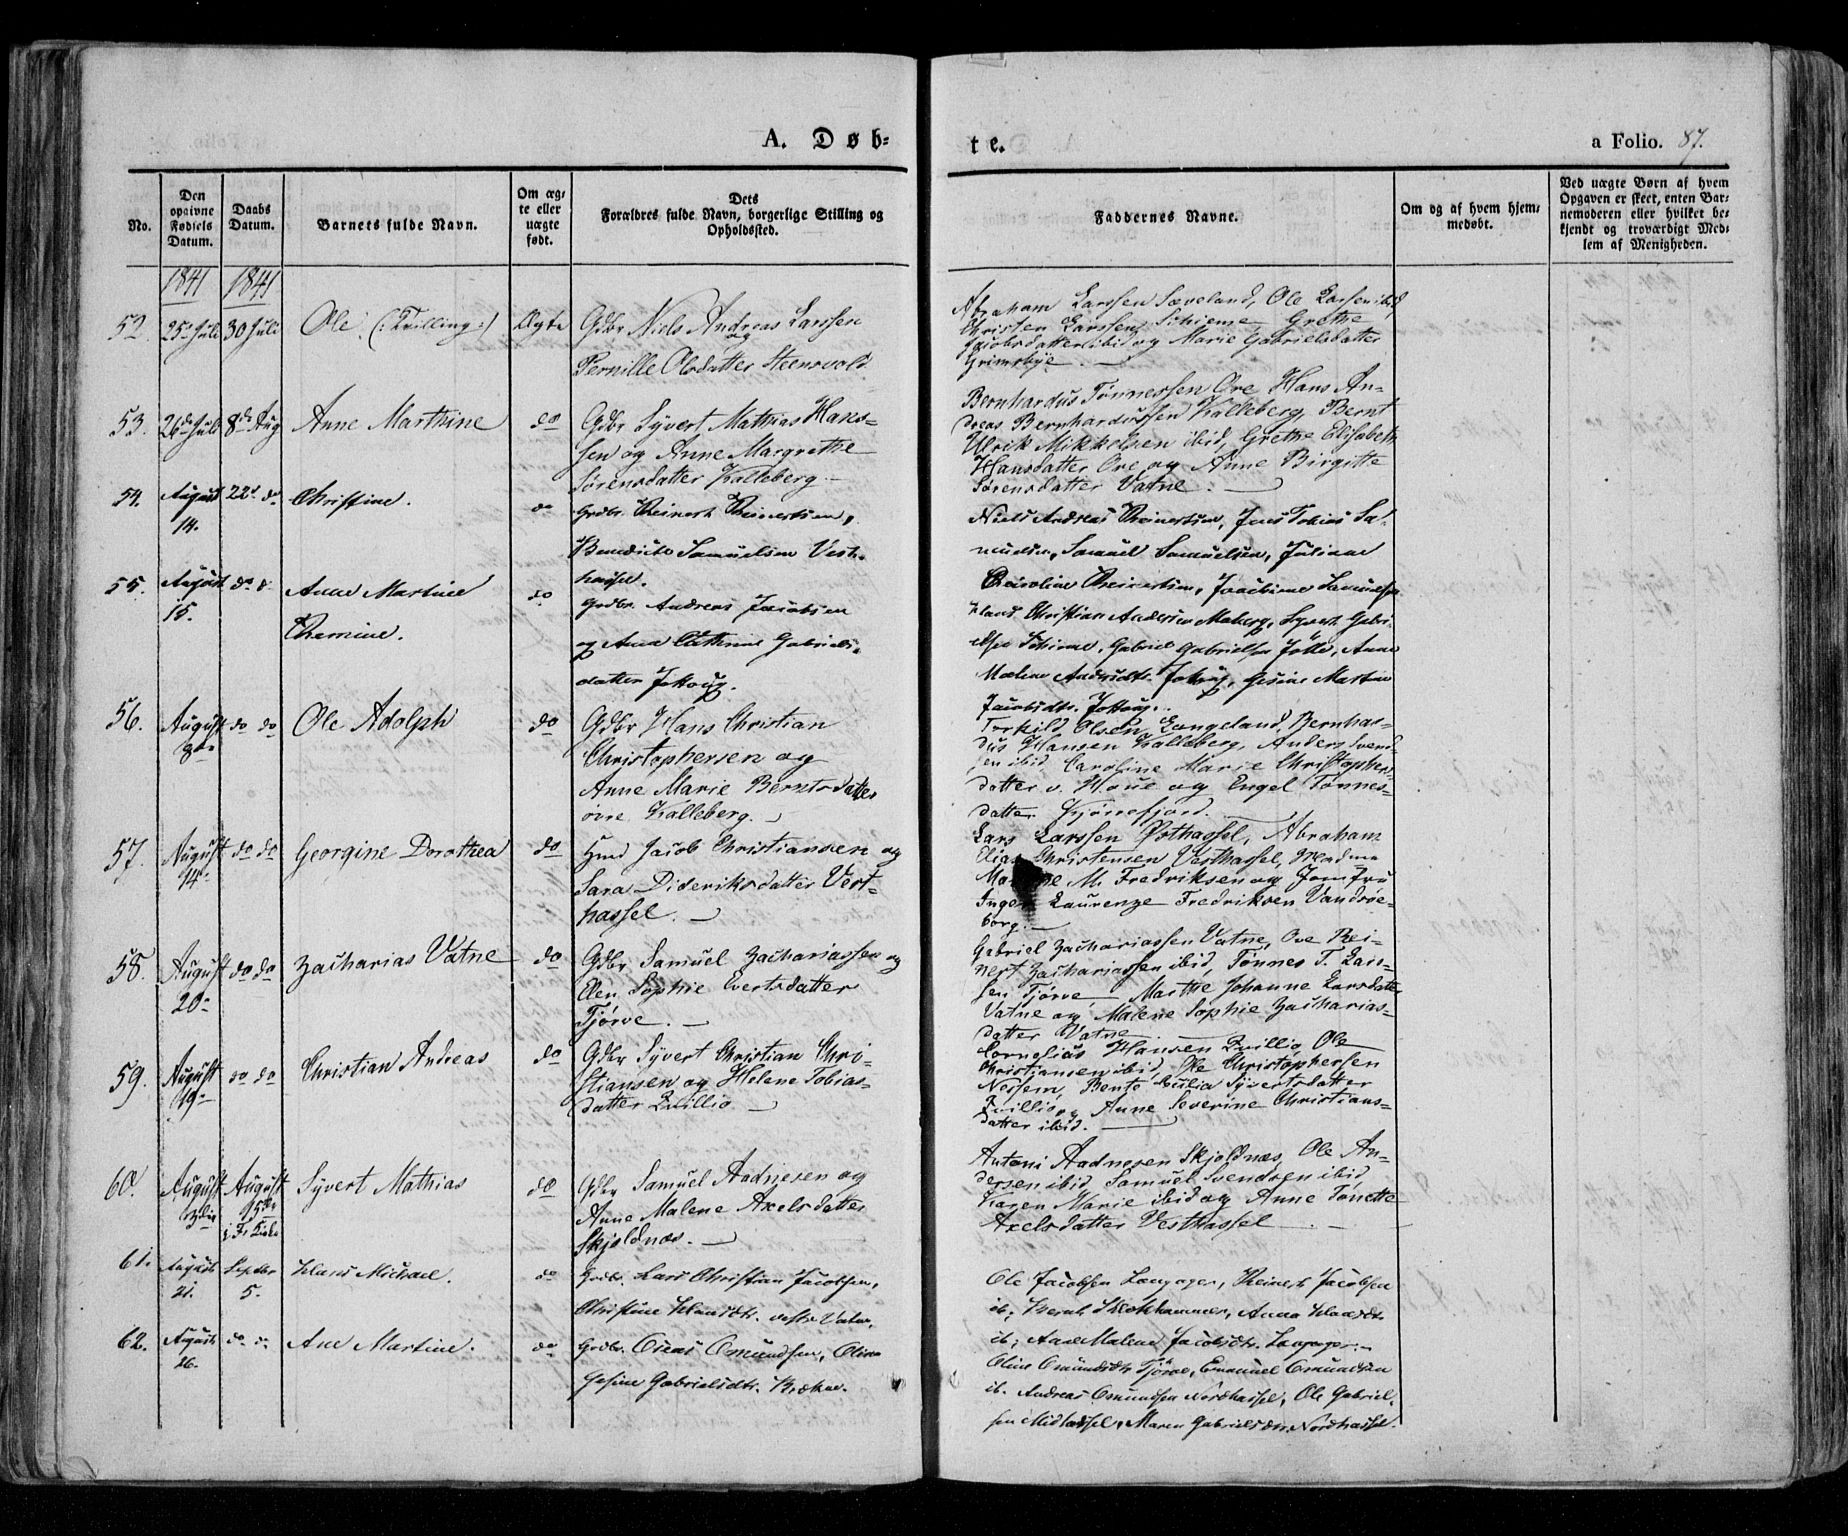 A. Døb-
te.
a Folio. 87.
No.
Den opgivne Fødsels Datum.
Daabs Datum.
Barnets fulde Navn.
Om ægte eller uægte født.
Dets Forældres fulde Navn, borgerlige Stilling og Opholdssted.
Faddernes Navne.
Om og af hvem hjemmedøbt.
Ved uægte Børn af hvem Opgaven er skeet, enten Barnemoderen eller hvilket bekjendt og troværdigt Medlem af Menigheden.
1841 1841
52. 25de Juli 30 Juli Ole (: Tvilling :) Ægte
Gdbr Niels Andreas Larssen
og
Pernille Olsdatter Steensvold
Abraham Larssen Sæveland, Ole Larsen ibid
Christen Larssen Schieme Grethe
Jacobsdatter ibid og Marie Gabrielsdatter
Grimsbye.
53. 26de Juli 8de Aug Anne Marthine do
Gdbr Syvert Mathias Hans-
sen og Anne Margrethe
Sørensdatter Kalleberg
Bernhardus Tønnessen Ore Hans An-
dreas Bernhardussen Kalleberg Bernt
Ulrik Mikkelsen ibid, Grethe Elisabeth
Hansdatter Ore og Anne Birgitte
Sørensdatter Vatne.
54. August 14. 22d do Christine. do
Grdbr. Reinert Reinertsen,
Benedicte Samuelsen Vest-
hassel.
Niels Andreas Reinertsen, Jens Tobias Sa-
muelsen, Samuel Samuelsen, Juliane
Caroline Reinertsen, Joachime Samuelsen
55. August 15. do d. Anne Martine
Remine. do
Grdbr. Andreas Jacobsen
og Ana Cathrine Gabriels-
datter Jøttoug.
Hans Christian Andersen Maberg, Syvert Gabri-
elsen Schieme, Gabriel Gabrielsen Jølle, Anne
Malene Andersdtr. Jøttoug, Gesine Martine
Jacobsdtr. Jøttoug.
56. August 8de do do Ole Adolph do
Gdbr Hans Christian
Christophersen og
Anne Marie Berntsdatter
øvre Kalleberg.
Torkild Olsen Længeland, Bernhar-
dus Hansen Kalleberg, Anders Svend-
sen ibid Caroline Marie Christophers-
datter v. Houe og Engel Tønnes-
datter Kjørrefjord.
57. August 14de do do Georgine Dorothea do
Hmd Jacob Christiansen og
Sara Dideriksdatter Vest-
hassel.
Lars Larssen Østhassel, Abraham
Elias Christensen Vesthassel, Madme
M. Fredriksen og Jomfru
Inger Laurenze Fredriksen Vandsøe-
borg.
58. August 20de do do Zacharias Vatne do
Gdbr Samuel Zachariassen og
Elen Sophie Evertsdatter
Tjørve.
Gabriel Zachariassen Vatne, Ove Rei-
nert Zachariassen ibid, Tønnes T. Lars-
sen Tjørve Marthe Johanne Larsdatter
Vatne og Malene Sophie Zacharias-
datter Vatne
59. August 19de do do Christian Andreas do
Gdbr Syvert Christian Chri-
stiansen og Helene Tobias-
datter Qvillio
Cornelius Hansen Qvillio Ole
Christiansen ibid, Ole Christophersen
Nessem, Bente Julia Syvertsdatter
Qvillio og Anne Severine Christians-
datter ibid.
60. August 3die August 15de i Fr. Kirke Syvert Mathias do
Gdbr Samuel Aadnesen og
Anne Malene Axelsdatter
Skjoldnæs.
Antoni Aadnesen Skjoldnæs, Ole An-
dersen ibid Samuel Svendsen ibid,
Karen Marie ibid og Anne Tonette
Axelsdatter Vesthassel
61. August 21. Septbr 5. Hans Michael. do
Grdbr. Lars Christian Jacobsen,
Christine Hansdtr. vestre Vatne.
Ole Jacobsen Langager, Reinert Jacobsen
ib; Bernt Klokhammer, Anna Hansdtr
ib; Ane Malene Jacobsdtr. Langager.
62. August 26. do. do Ane Martine. do
Grdbr. Oseas Omundsen, Oline
Gesine Gabrielsdtr. Brækne.
Oline Omundsdtr Tjørve, Emanuel Omundsen
ib. Andreas Omundsen Nordhassel, Ole Gabriel-
sen Midhassel, Maren Gabrielsdtr. Nordhassel.